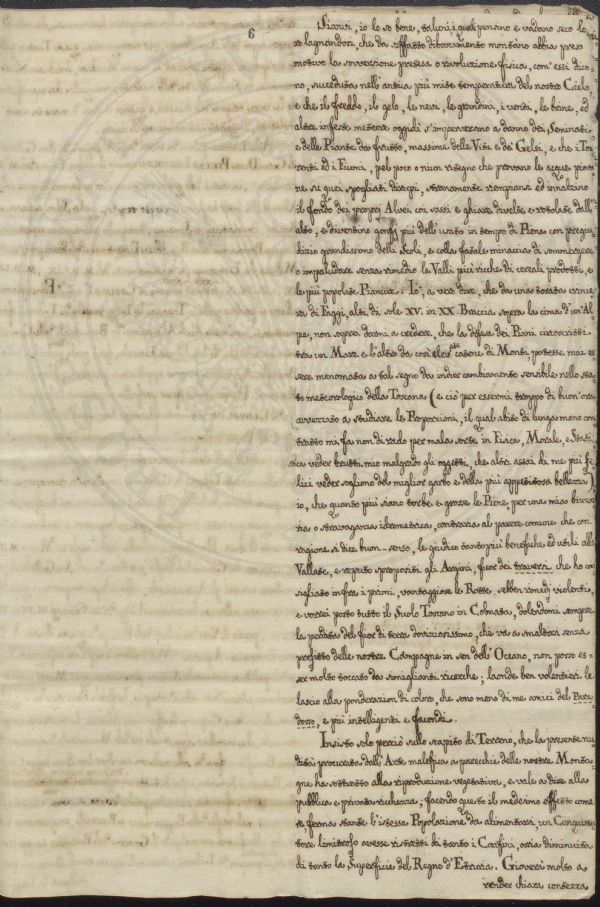 6
Siavi, io lo so bene, taluni, i quali pensino e vadano seco lo
ro lagnandosi, che da siffatto disboscamento montano abbia preso
motivo la sovversione pretesa o rivoluzione fisica, com' essi dico
no, succeduta nell' antica più mite temperatura del nostro Cielo,
e che il freddo, il gelo, le nevi, le grandini, i venti, le brine, ed
altre infeste meteore oggidì s'imperversino a danno dei Seminati
e delle Piante da frutto, massime delle Viti e de' Gelsi, e che i Tor
renti ed i Fiumi, pel poco o niun ritegno che provano le acque
su quei spogliati dirupi, stranamente riempiansi ed innalzino
il fondo dei proprj Alvei coi sassi e ghiaie divelte e rotolate dall'
alto, e divenino gonfj più dell' usato in tempo di Piena con pregiu
dizio grandissimo delli Scoli, e colla fatale minaccia di sommergere
o impaludare senza rimedio le Valli più ricche di cereali prodotti, e
le più popolate Pianure. Io, a vero dire, che da una tosata crinie
ra di Faggi, alti di sole XV. in XX. Braccia, sopra la cima d'un' Al
pe, non saprei darmi a credere, che la difesa dei Piani circoscritti
tra un Mare e l'altro da così elevate catene di Monti potesse mai es
sere menomata a tal segno da indur cambiamento sensibile nello sta
to meteorologico della Toscana (e ciò per essermi troppo di buon' ora
avvezzato a studiare le Proporzioni, il qual abito di lunga mano con
tratto mi fa non di rado per mala sorte in Fisica, Morale, e Stati
stica veder brutti mio malgrado gli oggetti, che altri assai di me più fe
lici veder sogliono del miglior garbo e della più appetitosa bellezza)
io, che quanto più siano torbe e grosse le Piene, per una mia bizzar
ria o stravaganza idrometrica, contraria al parere comune che con
ragione si dice buon-senso, le giudico tanto più benefiche ed utili alle
Vallate, e reputo spropositi gli Argini, fuor dei traversi che ho con
sigliato infra i primi, vantaggiose le Rotte sebben rimedj violenti,
e vorrei posto tutto il Suolo Toscano in Colmata, dolendomi sempre
la perdita del fior di terra doviziosissimo, che va a smaltirsi senza
profitto delle nostre Campagne in sen dell' Oceano, non posso es
ser molto toccato da simiglianti ricerche; laonde ben volentieri le
lascio alla ponderazion di coloro, che sono meno di me amici del Para
dosso, e più intelligenti e facondi.
Insisto solo perciò sullo scapito di Terreno, che la presente nu
dità procurata dall' Arte malefica a parecchie delle nostre Monta
gne ha sottratto alla riproduzione vegetativa, e vale a dire alla
pubblica e privata ricchezza; facendo questo il medesimo effetto come
se, ferma stante l'istessa Popolazione da alimentarsi, un Conquista
tore limitrofo avesse ristretti di tanto i Confini, ossia diminuita
di tanto la Superficie del Regno d'Etruria. Gioverà molto a
render chiara contezza